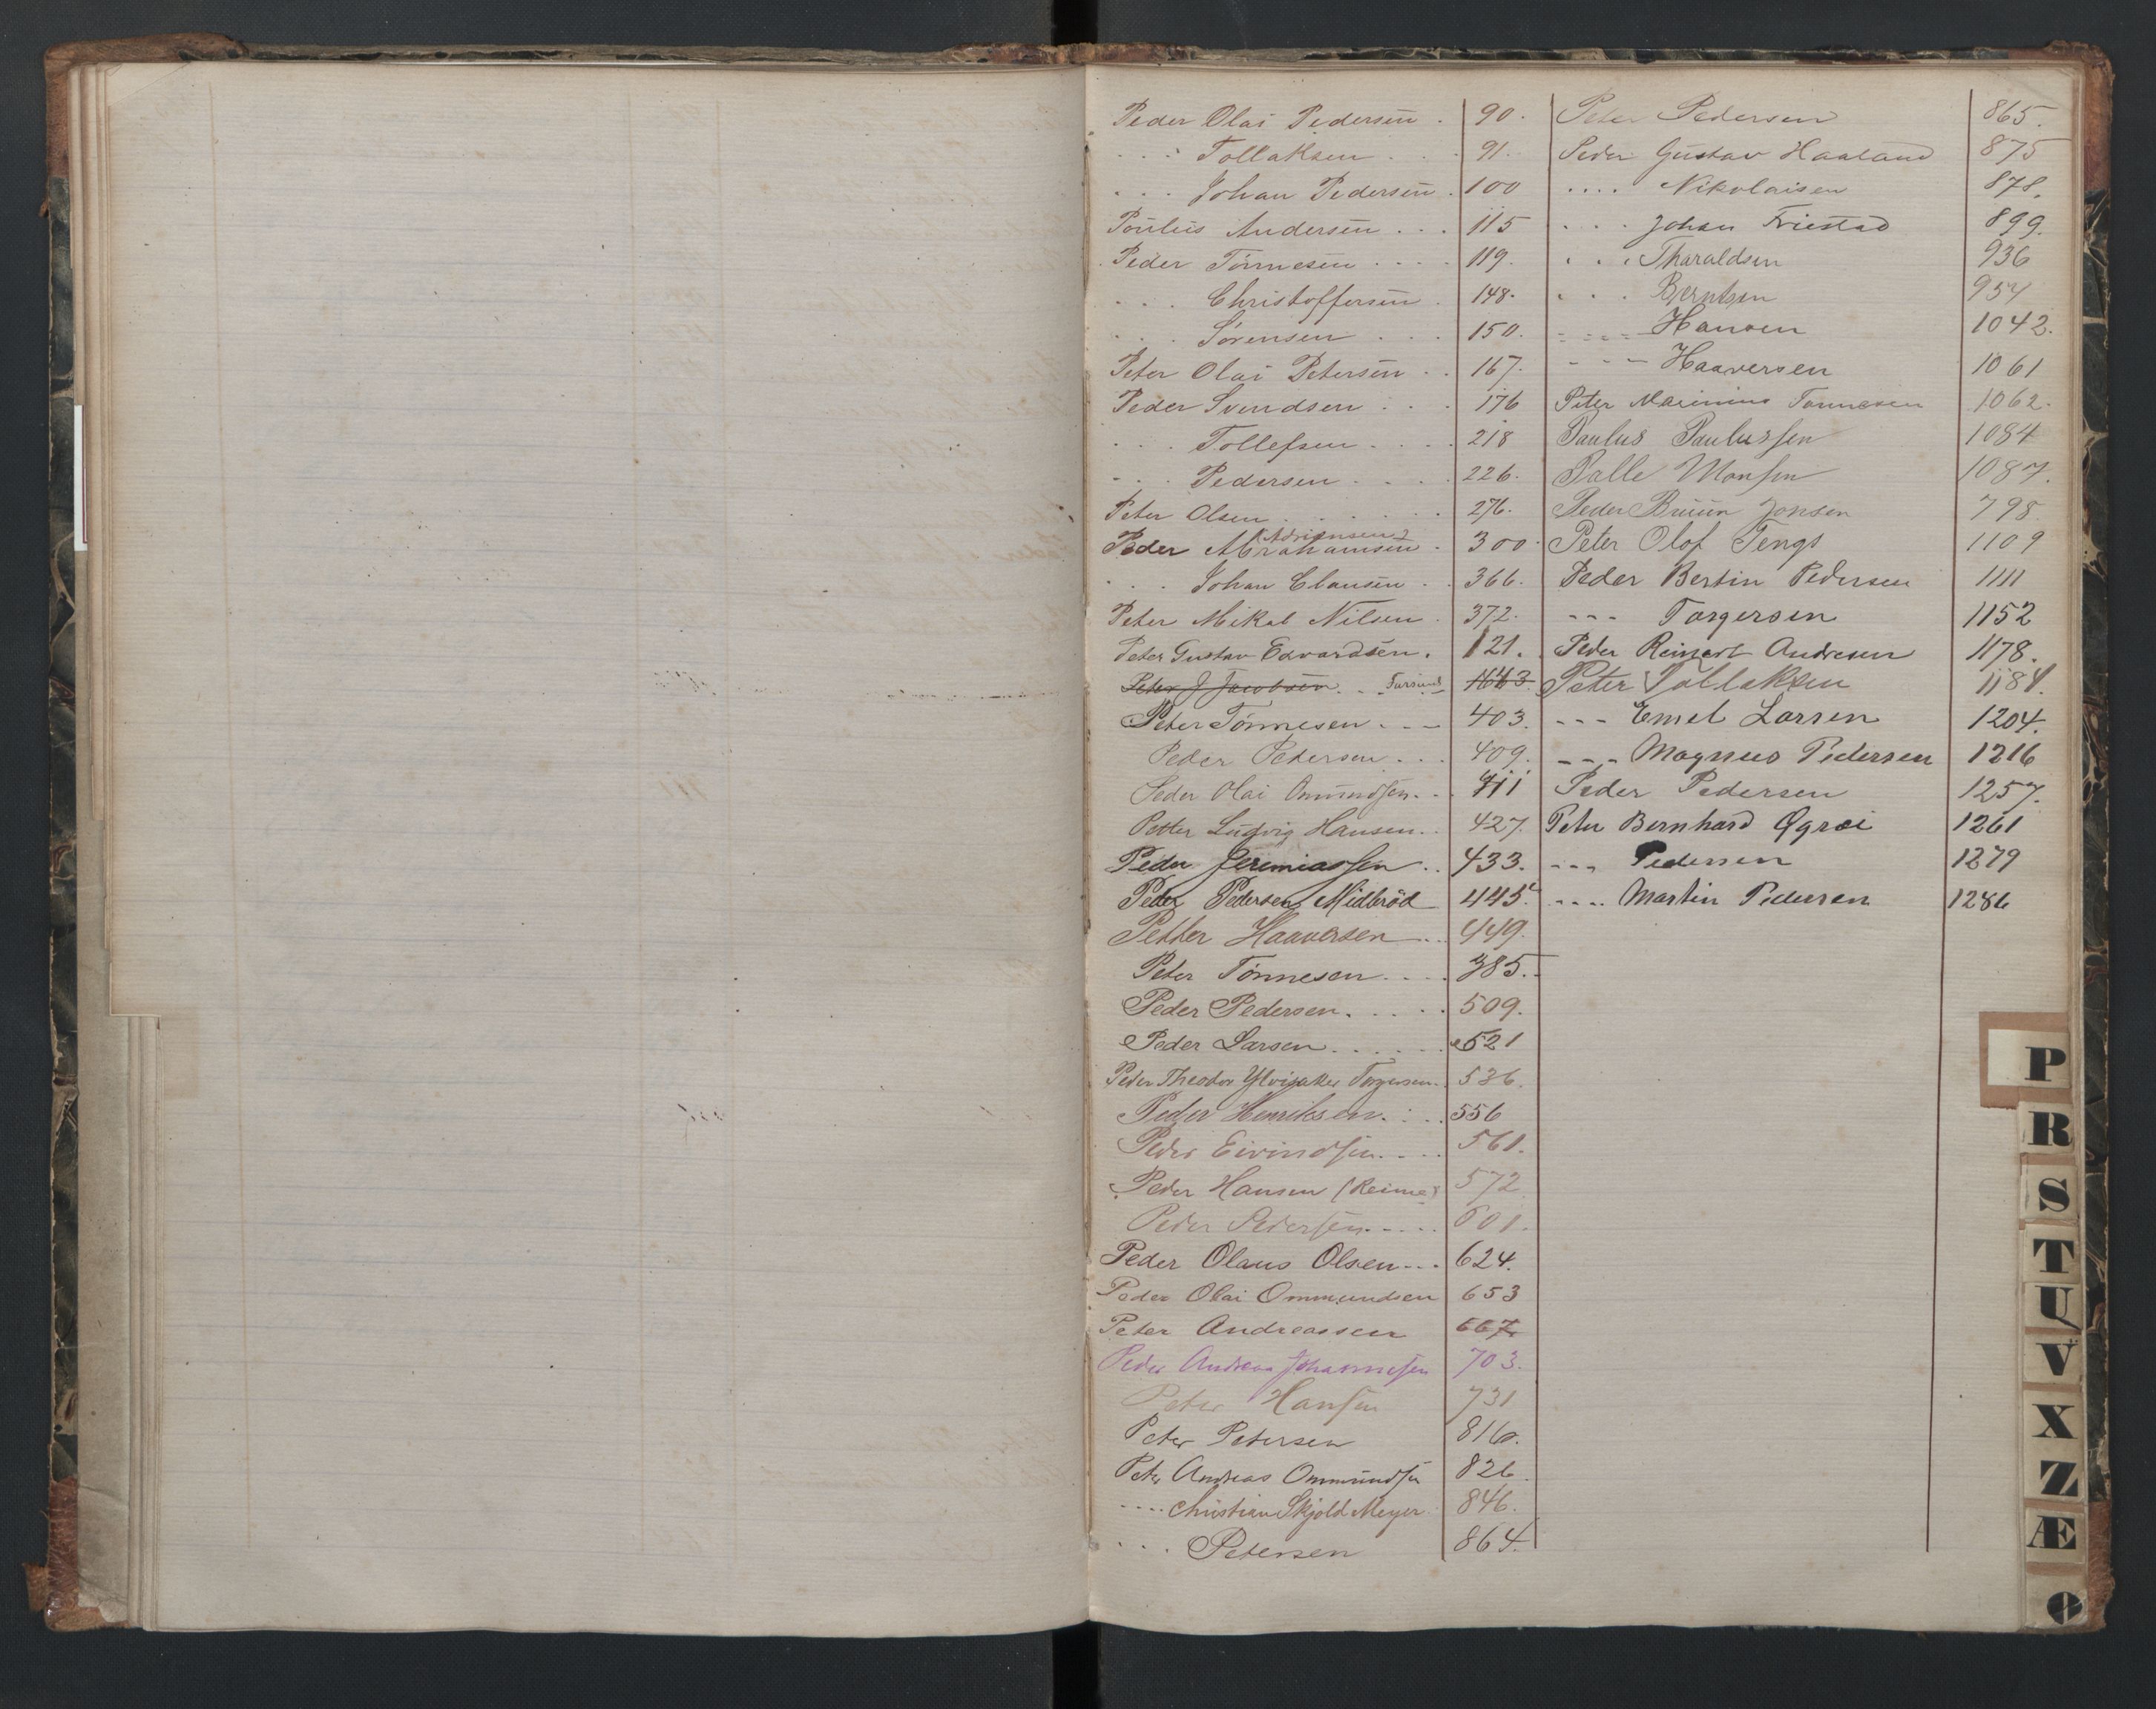 Peder Olai Pedersen . 90.
. . . Tollaksen . . . 91.
. . . Johan Pedersen . 100
Poulus Andersen . . . 115
Peder Tönnesen . . . . 119.
. . . Christoffersen . 148.
. . . Sörensen . . . 150.
Peter Olai Petersen . . 167.
Peder Svendsen . . . 176
. . . Tollefsen . . . . 218
. . . Pedersen . . . . 226.
Peter Olsen . . . . . . 276.
Adriansen
Peder Abrahamsen . 300.
. . . Johan Clausen . . 366.
Peter Mikal Nilsen . 372.
Peter Gustav Edvardsen . 121.
Peter J Jacobsen . . Farsund
Peter Tönnesen . . . 403.
Peder Pedersen . . . 409.
Peder Olai Ommundsen . . 411
Petter Ludvig Hansen . . 427.
Peder Jeremiassen . . 433.
Peder Pedersen Midbröd 445.
Petter Haaversen . . 449.
Peter Tönnesen . . . . 385.
Peder Pedersen . . . . . 509.
Peder Larsen . . . . . . 521
Peder Theodor Ylvisaker Torgersen . . 536.
Peder Henriksen . . . 556
Peder Eivindsen . . . . 561.
Peder Hansen (Reime) 572
Peder Pedersen . . . . . 601.
Peder Olaus Olsen . . . 624.
Peder Olai Ommundsen 653
Peter Andreassen 667.
Peder Andreas Johannesen 703.
Peter Hansen 731
Peter Petersen 816.
Peter Andreas Ommundsen 826.
. . . . Christian Skjold Meyer 846.
. . . Petersen 864.
Peter Pedersen 865.
Peder Gustav Haaland 875
. . . . Nikolaisen 878.
. . . . Johan Friestad 899.
. . . Tharaldsen 936
. . . Berntsen 954
. . . Hansen 1042.
- - - Haaversen 1061
Peter Marinius Tønnesen 1062.
Paulus Paulussen 1084
Palle Monsen 1087.
Peder Bruun Jonsen 798
Peter Olof Tengs 1109
Peder Bertin Pedersen 1111
- - - Torgersen 1152
Peder Reinert Andresen 1178.
Peter Tollaksen 1181.
- - - Emel Larsen 1204.
- - - Magnus Pedersen 1216
Peder Pedersen 1257.
Peter Bernhard 1261
- - - Pedersen 1279
- - - - Martin Pedersen 1286
P
R
S
T
U
V
X
Z
Æ
Ø